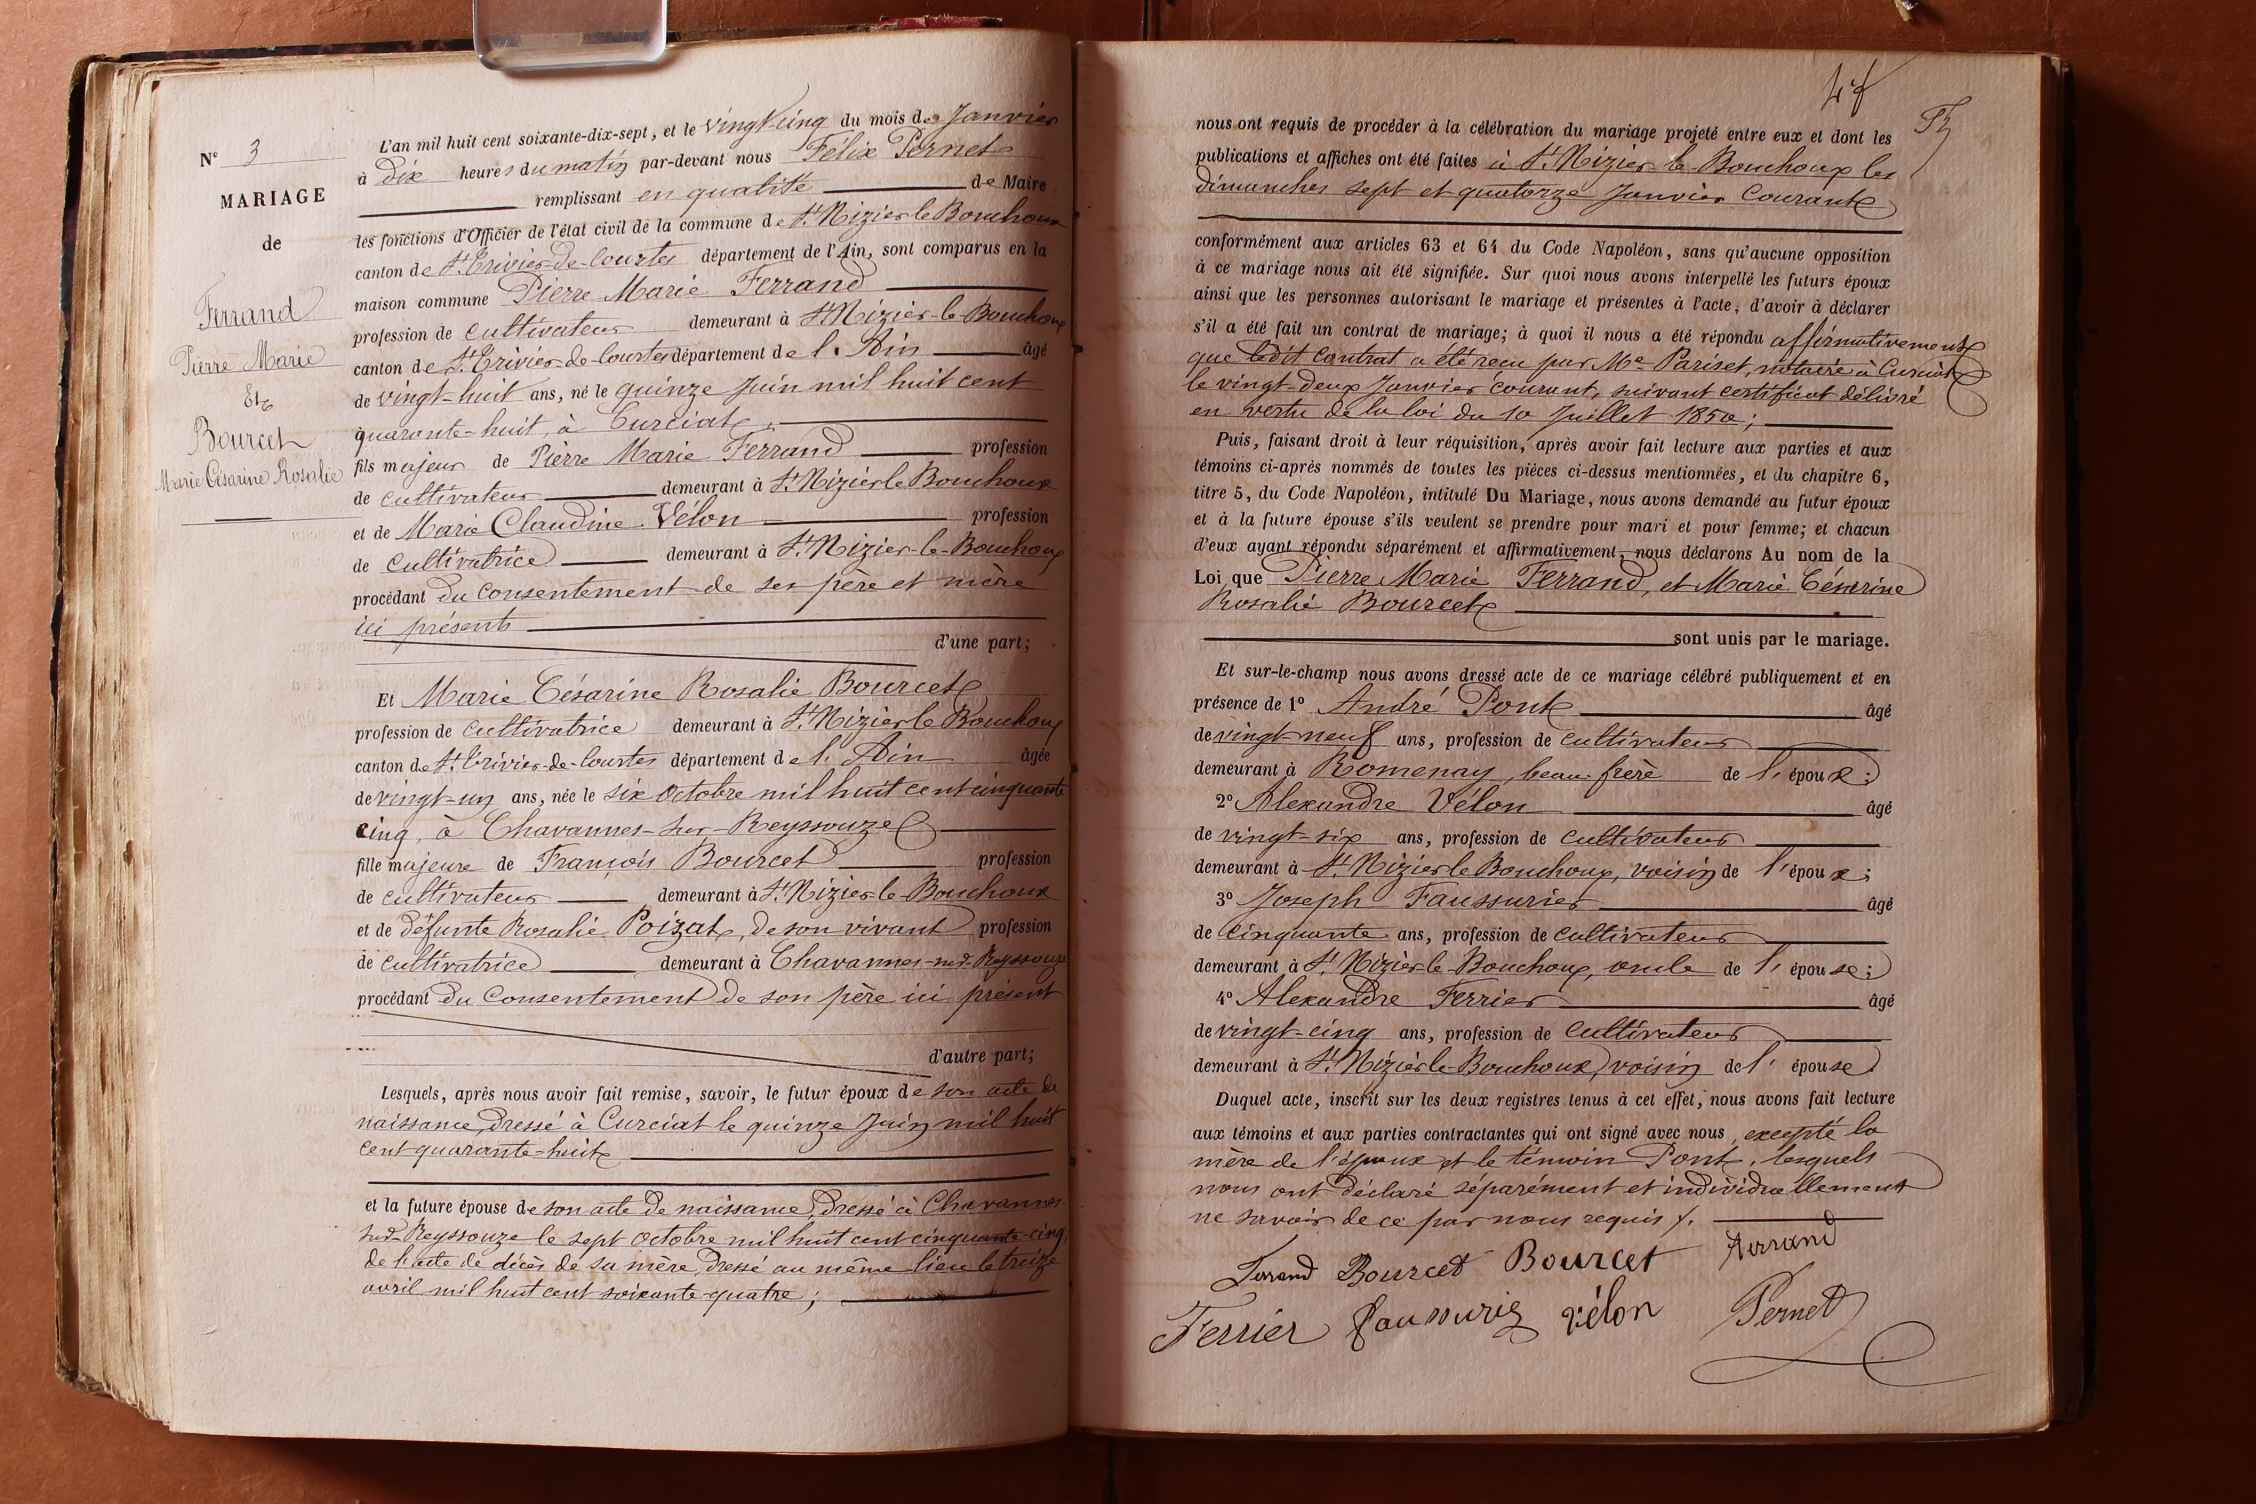 N° 3
MARIAGE
de
Ferrand
Pierre Marie
Et
Bourcet
Marie Césarine Rosalie
L'an mil huit cent soixante-dix-sept, et le vingt cinq du mois de Janvier
à dix heures du matin par-devant nous Félix Pernet
remplissant en qualité de Maire
les fonctions d'Officier de l'état civil de la commune de St Nizier le Bouchoux
canton de St Trivier-de-Courtes département de l'Ain, sont comparus en la
maison commune Pierre Marie Ferrand
profession de cultivateur demeurant à St Nizier-le-Bouchoux
canton de St Trivier-de-Courtes département de l'Ain âgé
de vingt-huit ans, né le quinze Juin mil huit cent
quarante-huit, à Curciat
fils majeur de Pierre Marie Ferrand profession
de cultivateur demeurant à St Nizier le Bouchoux
et de Marie Claudine Vélon profession
de cultivatrice demeurant à St Nizier-le-Bouchoux
procédant du consentement de ses père et mère
ici présents
d'une part;
Et Marie Césarine Rosalie Bourcet
profession de cultivatrice demeurant à St Nizier le Bouchoux
canton de St Trivier-de-Courtes département de l'Ain âgée
de vingt-un ans, née le six octobre mil huit cent cinquante
cinq, à Chavannes-sur-Reyssouze
fille majeure de François Bourcet profession
de cultivateur demeurant à St Nizier-le-Bouchoux
et de défunte Rosalie Poizat, de son vivant profession
de cultivatrice demeurant à Chavannes-sur-Reyssouze
procédant du consentement de son père ici présent
d'autre part;
Lesquels, après nous avoir fait remise, savoir, le futur époux de son acte de
naissance, dressé à Curciat le quinze Juin mil huit
cent quarante-huit
et la future épouse de son acte de naissance, dressé à Chavannes
sur-Reyssouze le sept octobre mil huit cent cinquante-cinq,
de l'acte de décès de sa mère, dressé au même lieu le treize
avril mil huit cent soixante-quatre;
nous ont requis de procéder à la célébration du mariage projeté entre eux et dont les
publications et affiches ont été faites à St Nizier-le-Bouchoux les
dimanches sept et quatorze Janvier courant
conformément aux articles 63 et 64 du Code Napoléon, sans qu'aucune opposition
à ce mariage nous ait été signifiée. Sur quoi nous avons interpellé les futurs époux
ainsi que les personnes autorisant le mariage et présentes à l'acte, d'avoir à déclarer
s'il a été fait un contrat de mariage; à quoi il nous a été répondu affirmativement
que ledit contrat a été reçu par Me Pariset, notaire à Curciat
le vingt-deux Janvier courant, suivant certificat délivré
en vertu de la loi du 10 Juillet 1850;
Puis, faisant droit à leur réquisition, après avoir fait lecture aux parties et aux
témoins ci-après nommés de toutes les pièces ci-dessus mentionnées, et du chapitre 6,
titre 5, du Code Napoléon, intitulé Du Mariage, nous avons demandé au futur époux
et à la future épouse s'ils veulent se prendre pour mari et pour femme; et chacun
d'eux ayant répondu séparément et affirmativement, nous déclarons Au nom de la
Loi que Pierre Marie Ferrand, et Marie Césarine
Rosalie Bourcet
sont unis par le mariage.
Et sur-le-champ nous avons dressé acte de ce mariage célébré publiquement et en
présence de 1° André Pont âgé
de vingt-neuf ans, profession de cultivateur
demeurant à Romenay, beau-frère de l'époux;
2° Alexandre Vélon âgé
de vingt-six ans, profession de cultivateur
demeurant à St Nizier le Bouchoux, voisin de l'époux;
3° Joseph Faussurier âgé
de cinquante ans, profession de cultivateur
demeurant à St Nizier-le-Bouchoux, oncle de l'épouse;
4° Alexandre Ferrier âgé
de vingt-cinq ans, profession de cultivateur
demeurant à St Nizier-le-Bouchoux, voisin de l'épouse.
Duquel acte, inscrit sur les deux registres tenus à cet effet, nous avons fait lecture
aux témoins et aux parties contractantes qui ont signé avec nous, excepté la
mère de l'époux et le témoin Pont, lesquels
nous ont déclaré séparément et individuellement
ne savoir de ce par nous requis.
Ferrand Bourcet Bourcet Ferrand
Ferrier Faussurier Vélon Pernet